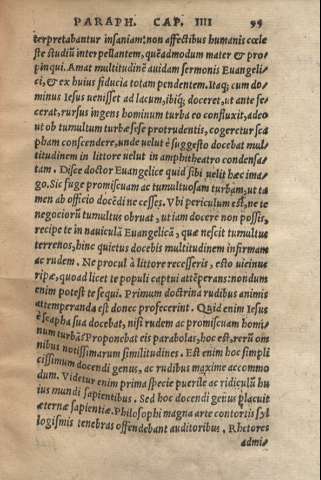 PARAPH. CAP. IIII 99
terpretabantur insaniam: non affectibus humanis cœle
ste studiũ interpellantem, quẽadmodum mater & pro=
pinqui. Amat multitudinẽ auidam sermonis Euangeli
ci, & ex huius fiducia totam pendentem. Itaq; cum do=
minus Iesus uenisset ad lacum, ibiq; doceret, ut ante fe=
cerat, rursus ingens hominum turba eo confluxit, adeo
ut ob tumultum turbæ sese protrudentis, cogeretur sca
pham conscendere, unde uelut è suggesto docebat mul
titudinem in littore uelut in amphitheatro condensa=
tam. Disce doctor Euangelice quid sibi uelit hæc ima=
go. Sic fuge promiscuam ac tumultuosam turbam, ut ta
men ab officio docẽdi ne cesses. Vbi periculum est, ne te
negociorũ tumultus obruat, ut iam docere non possis,
recipe te in nauiculã Euangelicã, quæ nescit tumultus
terrenos, hinc quietus docebis multitudinem infirmam
ac rudem. Ne procul à littore recesseris, esto uicinus
ripæ, quoad licet te populi captui attẽperans: nondum
enim potest te sequi. Primum doctrina rudibus animis
attemperanda est donec profecerint. Quid enim Iesus
è scapha sua docebat, nisi rudem ac promiscuam homi=
num turbã? Proponebat eis parabolas, hoc est, rerũ om
nibus notissimarum similitudines. Est enim hoc simpli
cissimum docendi genus, ac rudibus maxime accommo
dum. Videtur enim prima specie puerile ac ridiculũ hu
ius mundi sapientibus. Sed hoc docendi genus placuit
æternæ sapientiæ. Philosophi magna arte contortis syl
logismis tenebras offendebant auditoribus. Rhetores
admi=